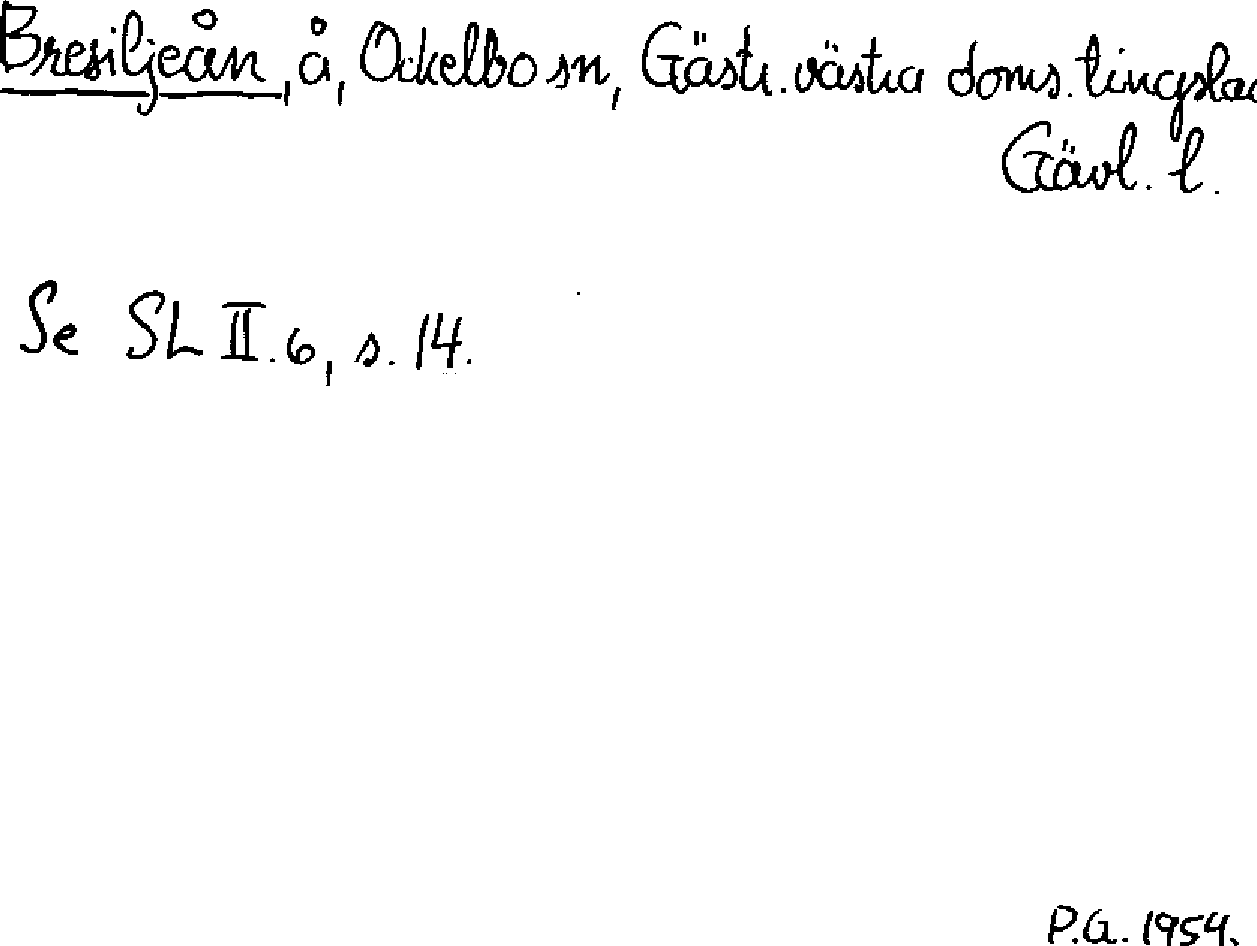 Bresiljeån, å, Ockelbo sn, Gästr. västra doms. tingslag
Gävl. l.
Se SL II.6, s. 14.
P.G. 1954.